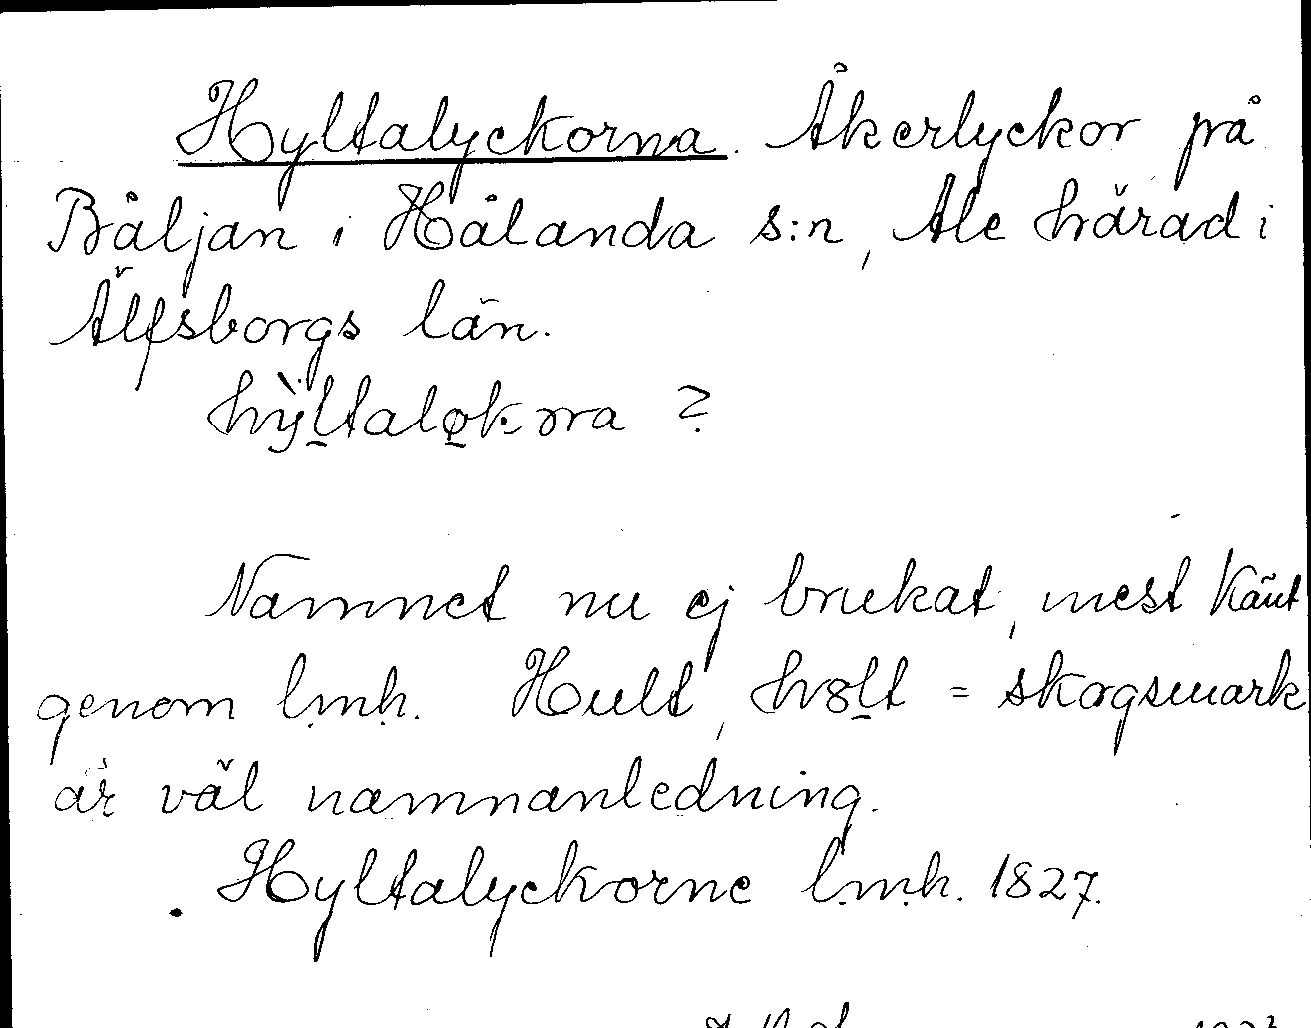 Hyltalyckorna. Åkerlyckor på
Båljan i Hålanda s:n, Ale härad i
Älfsborgs län.
hỳltalǫkɔrra ?
Namnet nu ej brukat, mest känt
genom l.m.h. Hult, hɞlt = skogsmark
är väl namnanledning.
Hyltalyckorne l.m.h. 1827.